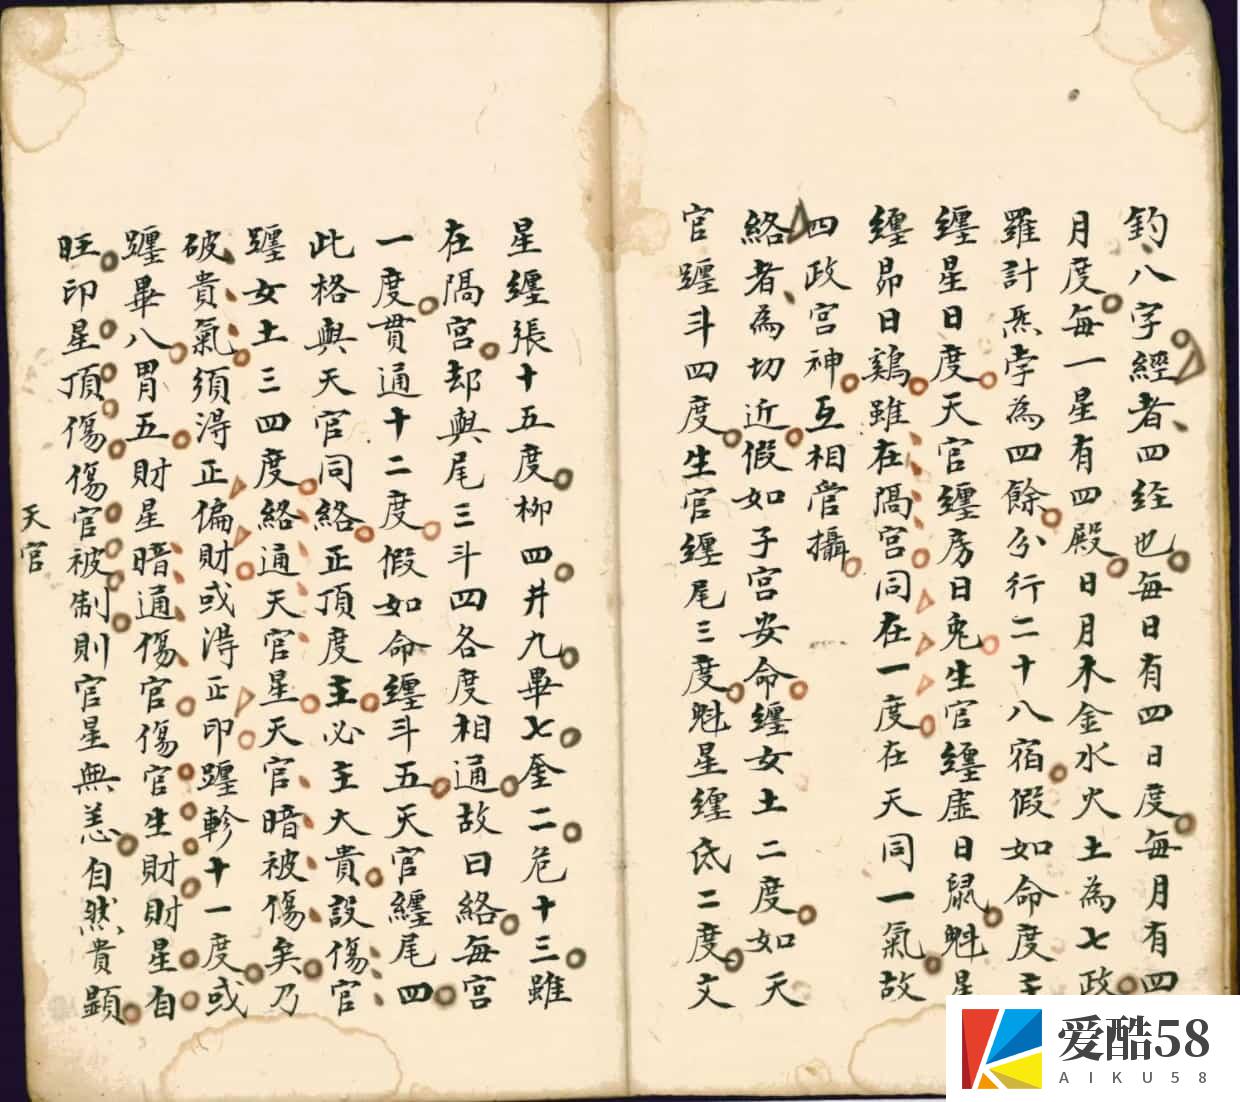 釣八字經者四经也每日有四日度每月有四
月度每一星有四殿日月木金水火土為七政
羅計炁孛為四餘分行二十八宿假如命度主
纏星日度天官纏房日兔生官纏虛日鼠魁星
纏昴日鷄雖在隔宮同在一度在天同一氣故
四政宮神互相管攝
絡者為切近假如子宮安命纏女土二度如天
官躔斗四度生官纏尾三度魁星纏氐二度文
星纏張十五度柳四井九畢七奎二危十三雖
在隔宮却與尾三斗四各度相通故曰絡每宮
一度貫通十二度假如命纏斗五天官纏尾四
此格與天官同絡正頂度主必主大貴設傷官
躔女土三四度絡通天官星天官暗被傷矣乃
破貴氣須淂正偏財或淂正印躔軫十一度或
躔畢八胃五財星暗通傷官傷官生財財星自
旺印星頂傷傷官被制則官星無恙自然貴顕
天官
爱酷58
AIKU58